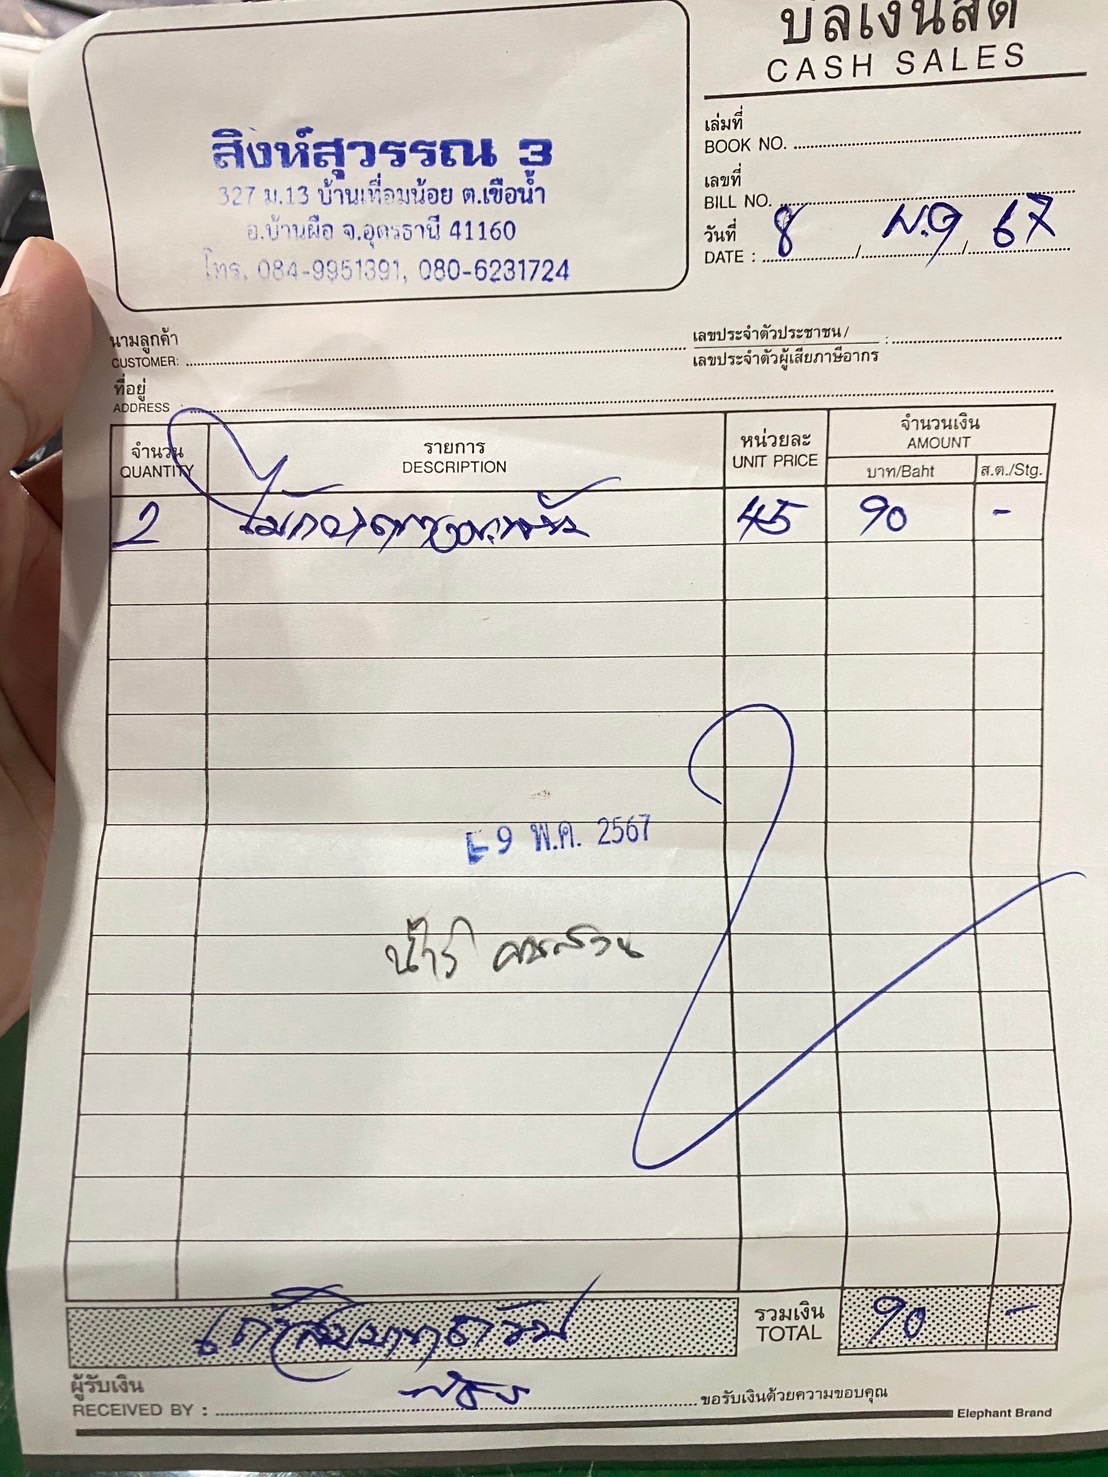 บิลเงินสด
CASH SALES
สิงห์สุวรรณ 3
327 ม.13 บ้านเทื่อมน้อย ต.เขือน้ำ
อ.บ้านผือ จ.อุดรธานี 41160
โทร. 084-9951391, 080-6231724
เล่มที่
BOOK NO.
เลขที่
BILL NO.
วันที่
DATE : 8 / พ.ค / 67
นามลูกค้า
CUSTOMER:
เลขประจำตัวประชาชน /
เลขประจำตัวผู้เสียภาษีอากร :
ที่อยู่
ADDRESS :
จำนวน
QUANTITY
รายการ
DESCRIPTION
หน่วยละ
UNIT PRICE
จำนวนเงิน
AMOUNT
บาท/Baht
ส.ต./Stg.
2 ไม้กวาดทางมะพร้าว 45 90 -
9 พ.ค. 2567
คนสวน
เก้าสิบบาทถ้วน
รวมเงิน
TOTAL
90 -
ผู้รับเงิน
RECEIVED BY :
ขอรับเงินด้วยความขอบคุณ
Elephant Brand